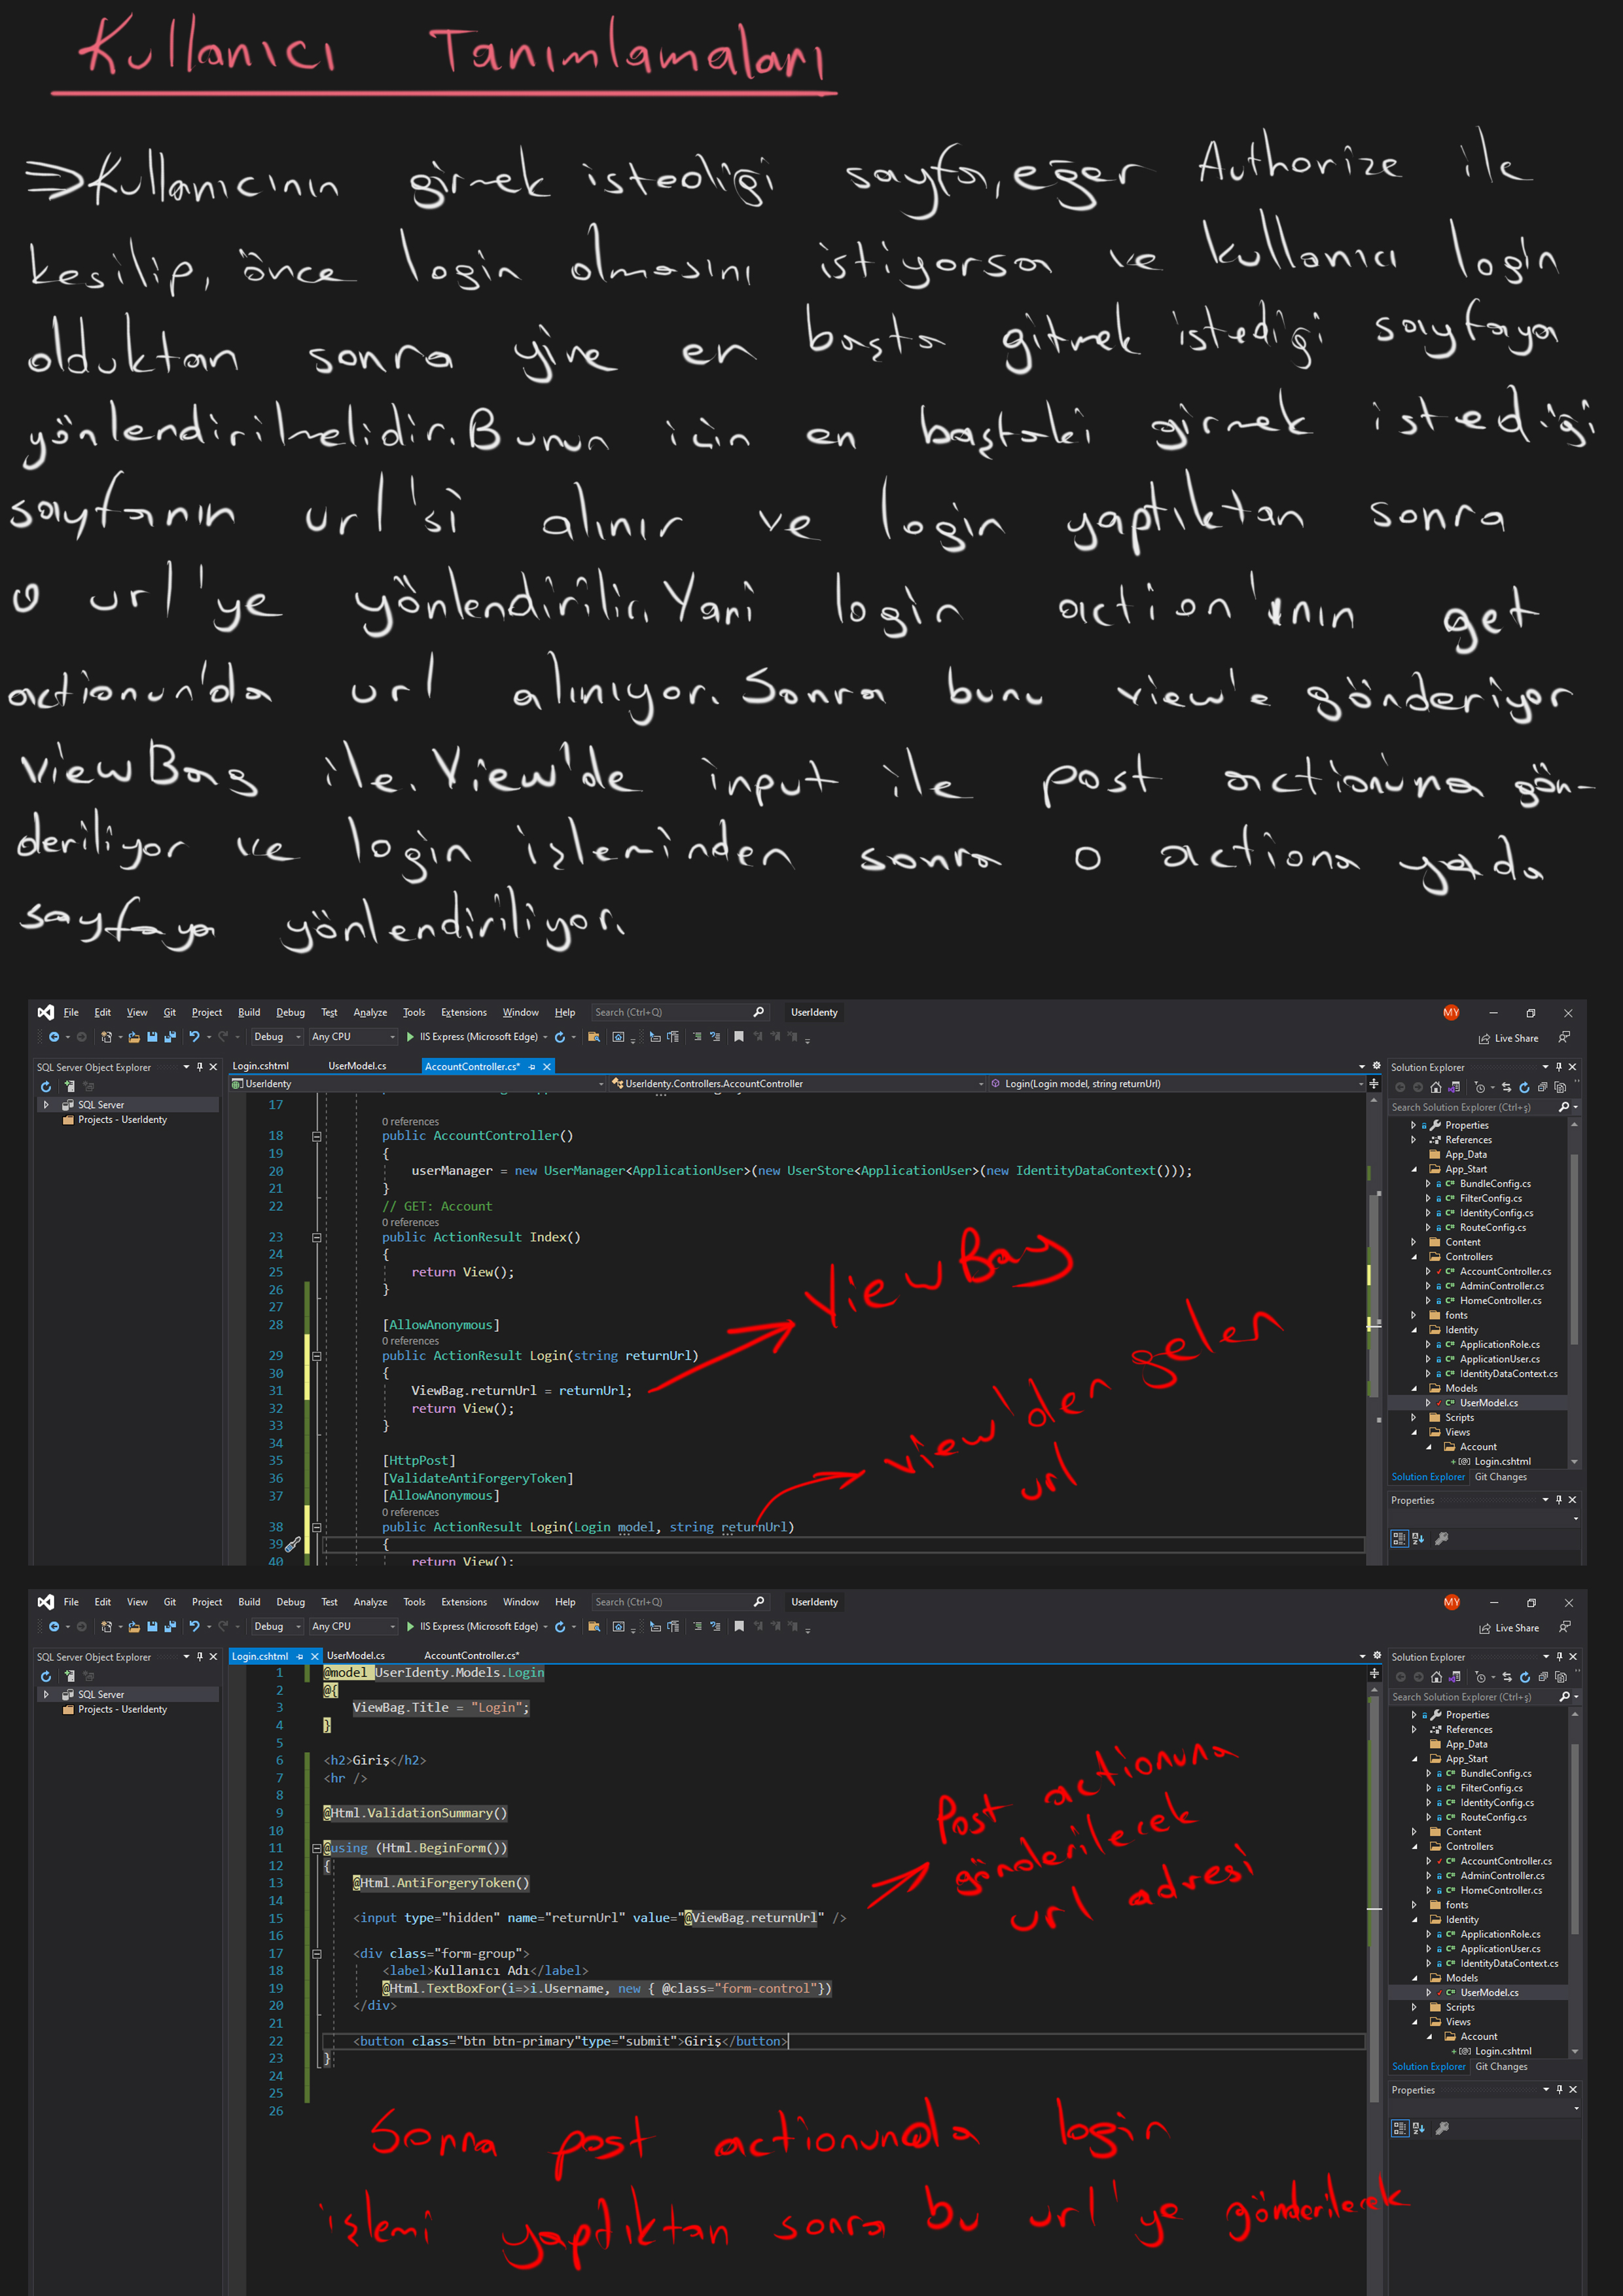 Kullanıcı Tanımlamaları
⇒Kullanıcının girmek istediği sayfa, eğer Authorize ile
kesilip, önce login olmasını istiyorsa ve kullanıcı login
olduktan sonra yine en başta gitmek istediği sayfaya
yönlendirilmelidir. Bunun için en baştaki girmek istediği
sayfanın url'si alınır ve login yaptıktan sonra
o url'ye yönlendirilir. Yani login action'ının get
actionun'da url alınıyor. Sonra bunu view'e gönderiyor
ViewBag ile. View'de input ile post actionuna gön-
deriliyor ve login işleminden sonra o actiona yada
sayfaya yönlendiriliyor.
File Edit View Git Project Build Debug Test Analyze Tools Extensions Window Help Search (Ctrl+Q) UserIdenty MY
Debug Any CPU IIS Express (Microsoft Edge) Live Share
SQL Server Object Explorer Login.cshtml UserModel.cs AccountController.cs* Solution Explorer
UserIdenty UserIdenty.Controllers.AccountController Login(Login model, string returnUrl)
SQL Server
Projects - UserIdenty
17
0 references
18 public AccountController()
19 {
20 userManager = new UserManager<ApplicationUser>(new UserStore<ApplicationUser>(new IdentityDataContext()));
21 }
22 // GET: Account
0 references
23 public ActionResult Index()
24 {
25 return View();
26 }
27
28 [AllowAnonymous]
0 references
29 public ActionResult Login(string returnUrl)
30 {
31 ViewBag.returnUrl = returnUrl;
32 return View();
33 }
34
35 [HttpPost]
36 [ValidateAntiForgeryToken]
37 [AllowAnonymous]
0 references
38 public ActionResult Login(Login model, string returnUrl)
39 {
40 return View();
ViewBag
view'den gelen
url
Search Solution Explorer (Ctrl+ş)
Properties
References
App_Data
App_Start
BundleConfig.cs
FilterConfig.cs
IdentityConfig.cs
RouteConfig.cs
Content
Controllers
AccountController.cs
AdminController.cs
HomeController.cs
fonts
Identity
ApplicationRole.cs
ApplicationUser.cs
IdentityDataContext.cs
Models
UserModel.cs
Scripts
Views
Account
Login.cshtml
Solution Explorer Git Changes
Properties
File Edit View Git Project Build Debug Test Analyze Tools Extensions Window Help Search (Ctrl+Q) UserIdenty MY
Debug Any CPU IIS Express (Microsoft Edge) Live Share
SQL Server Object Explorer Login.cshtml UserModel.cs AccountController.cs* Solution Explorer
SQL Server
Projects - UserIdenty
1 @model UserIdenty.Models.Login
2 @{
3 ViewBag.Title = "Login";
4 }
5
6 <h2>Giriş</h2>
7 <hr />
8
9 @Html.ValidationSummary()
10
11 @using (Html.BeginForm())
12 {
13 @Html.AntiForgeryToken()
14
15 <input type="hidden" name="returnUrl" value="@ViewBag.returnUrl" />
16
17 <div class="form-group">
18 <label>Kullanıcı Adı</label>
19 @Html.TextBoxFor(i=>i.Username, new { @class="form-control"})
20 </div>
21
22 <button class="btn btn-primary"type="submit">Giriş</button>
23 }
24
25
26
Post actionuna
gönderilecek
url adresi
Search Solution Explorer (Ctrl+ş)
Properties
References
App_Data
App_Start
BundleConfig.cs
FilterConfig.cs
IdentityConfig.cs
RouteConfig.cs
Content
Controllers
AccountController.cs
AdminController.cs
HomeController.cs
fonts
Identity
ApplicationRole.cs
ApplicationUser.cs
IdentityDataContext.cs
Models
UserModel.cs
Scripts
Views
Account
Login.cshtml
Solution Explorer Git Changes
Properties
Sonra post actionunda login
işlemi yaptıktan sonra bu url'ye gönderilecek